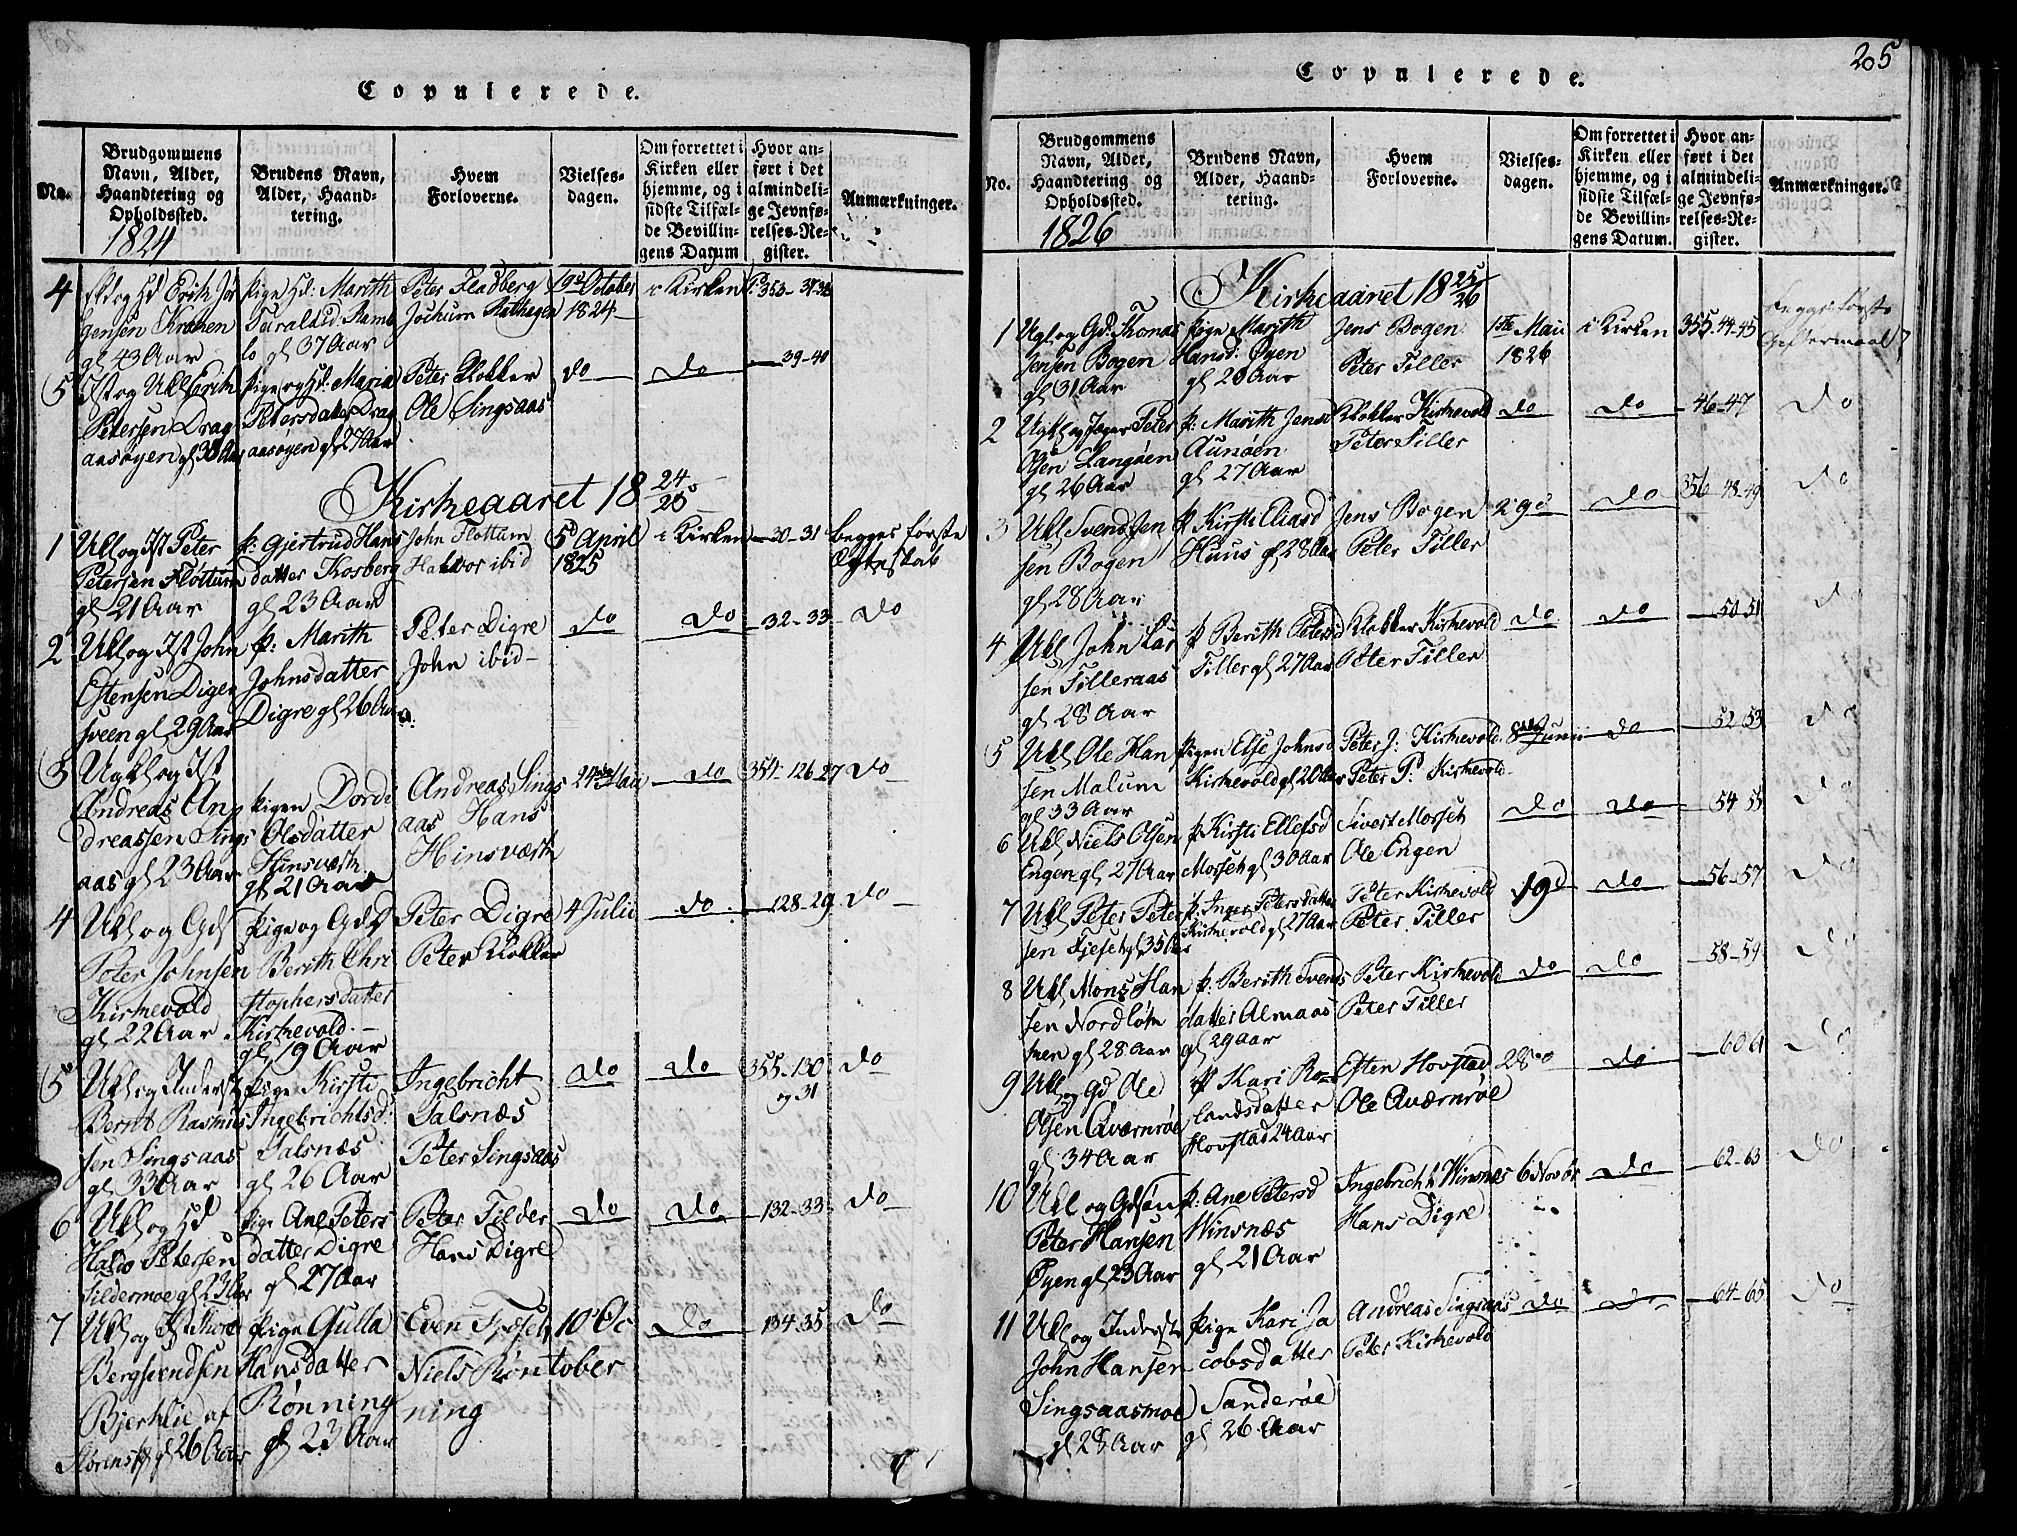 Copulerede.
No.
Brudgommens
Navn, Alder,
Haandtering og
Opholdssted.
1824
Brudens Navn,
Alder, Haand-
tering.
Hvem
Forloverne.
Vielses-
dagen.
Om forrettet i
Kirken eller
hjemme, og i
sidste Tilfæl-
de Bevillin-
gens Datum
Hvor an-
ført i det
almindeli-
ge Jevnfø-
relses-Re-
gister.
Anmærkninger.
4
Erik Jør
gensen Kranen
gl 43 Aar
Pige Marith
Ramb
lo gl 37 Aar
Peter Fladberg
Jochum Rathagen
19de October
1824
i Kirken
353-37-38
5
Erik
Petersen Drag
aasøyen
Pige og Maria
Petersdatter Drag
aasøyen gl 27 Aar
Peter Klokker
Ole Singsaas
do
do
39-40
Kirkeaaret 18 24/25
1
Peter
Petersen Fløttum
gl 21 Aar
p: Gjertrud Hans
datter Kosberg
gl 23 Aar
John Fløttum
Haldor ibid
5 April
1825
i Kirken
30-31
begges første
Egteskab
2
John
Estensen Digre
sveen gl 29 Aar
p: Marith
Johnsdatter
Digre gl 26 Aar
Peter Digre
John ibid
do
do
32-33
do
3
Andreas An
dreassen Sings
aas gl 23 Aar
Pigen Dordi
Olsdatter
Hinsværk
gl 21 Aar
Andreas Sings
aas Hans
Hinsværk
24de Maii
do
354-126-27
do
4
Peter Johnsen
Kirkevold
gl 22 Aar
Pige og
Berith Chri
stophersdatter
Kirkevold
gl 19 Aar
Peter Digre
Peter Klokker
4 Julii
do
128-29
do
5
Bernt Rasmus
sen Singsaas
gl 33 Aar
Pige Kirsti
Ingebrichtsd:
Talsnæs
gl 26 Aar
Ingebricht
Talsnæs
Peter Singsaas
do
do
355-130
og 31
do
6
Haldo Petersen
Tildermoe
Pige Ane Peters
datter Digre
gl 27 Aar
Peter Tilder
Hans Digre
do
do
132-33
do
7
Bergsvendsen
Bjerklie af
gl 26 Aar
Pige Gulla
Hansdatter
Rønning
gl 23 Aar
Even Fjeset
Niels Røn
ning
10 Oc
tober
do
134-35
do
Copulerede.
205
No.
Brudgommens
Navn, Alder,
Haandtering og
Opholdssted.
1826
Brudens Navn,
Alder, Haand-
tering.
Hvem
Forloverne.
Vielses-
dagen.
Om forrettet i
Kirken eller
hjemme, og i
sidste Tilfæl-
de Bevillin-
gens Datum.
Hvor an-
ført i det
almindeli-
ge Jevnfø-
relses-Re-
gister.
Anmærkninger.
Kirkeaaret 18 25/26
1
Thomas
Jensen Bogen
gl 31 Aar
Pige Marith
Hansd: Øyen
Jens Bogen
Peter Tiller
1ste Maii
1826
i Kirken
355-44-45
Begges første
Giftermaal
2
Peter
Olsen Langøen
gl 26 Aar
p: Marith Jensd
Aunøen
gl 27 Aar
Klokker Kirkevold
Peter Tiller
do
do
46-47
do
3
Svend Jen
sen Bogen
gl 28 Aar
p: Kirsti Eliasd
Huus gl 28 Aar
Jens Bogen
Peter Tiller
do
356-48-49
do
4
John Lar
sen Tilleraas
gl 28 Aar
p Berith Petersd
Tiller gl 27 Aar
Klokker Kirkevold
Peter Tiller
do
do
50 51
5
Ole Han
sen Malum
gl 33 Aar
Pigen Else Johnsd
Kirkevold gl 20 Aar
Peter J: Kirkevold
Peter P: Kirkevold
Junii
do
52-53
do
6
Niels Olsen
Engen gl 27 Aar
p Kirsti Ellefsd
Morset gl 30 Aar
Sivert Morset
Ole Engen
do
do
54 55
do
7
Peter Peter
sen Fjeset gl 35 Aar
p: Inger Petersdatter
Kirkevold gl 27 Aar
Peter Kirkevold
Peter Tiller
19d
do
56-57
do
8
Mons Han
sen Nordløk
gl 28 Aar
p: Berith Svends
datter Almaas
gl 29 Aar
Peter Kirkevold
Peter Tiller
do
do
58-59
do
9
Ole
Olsen Qværnrøe
gl 34 Aar
Kari Ro
landsdatter
Hovstad 24 Aar
Esten Hovstad
Ole Qværnrøe
28
do
60 61
do
10
Peter Hansen
Øyen gl 23 Aar
p: Ane Petersd
Winsnæs
gl 21 Aar
Ingebricht Winsnæs
Hans Digre
6 Novbr
do
62-63
do
11
John Hansen
Singsaasmoe
gl 28 Aar
Pige Kari Ja
cobsdatter
Sanderøe
gl 26 Aar
Andreas Singsaas
Peter Kirkevold
do
do
64-65
do